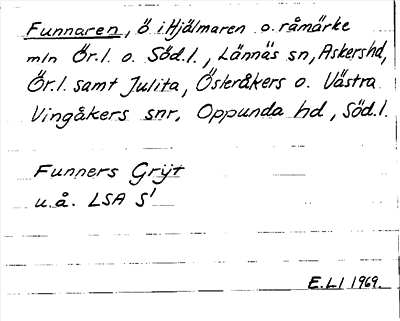 Funnaren, ö i Hjälmaren o. råmärke
mln Ör.l. o. Söd.l., Lännäs sn, Askers hd,
Ör.l. samt Julita, Österåkers o. Västra
Vingåkers snr, Oppunda hd, Söd.l.
Funners Grÿt
u.å. LSA S¹
E.LI 1969.